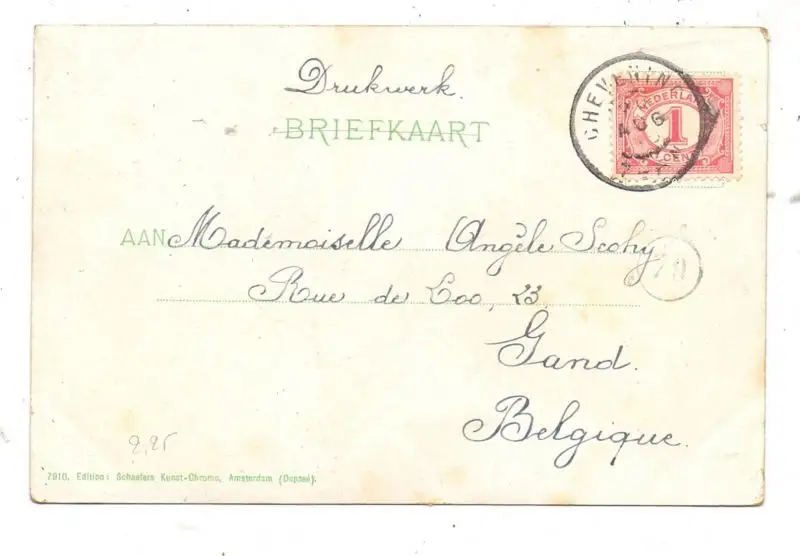 Drukwerk.
BRIEFKAART
CHEVENIN
AUG
NEDERLAND
1
CENT
AAN Mademoiselle Angèle Scohy
Rue de Loo, 23,
Gand.
Belgique.
2,25
7910. Edition: Schaefers Kunst-Chromo, Amsterdam (Deposé).